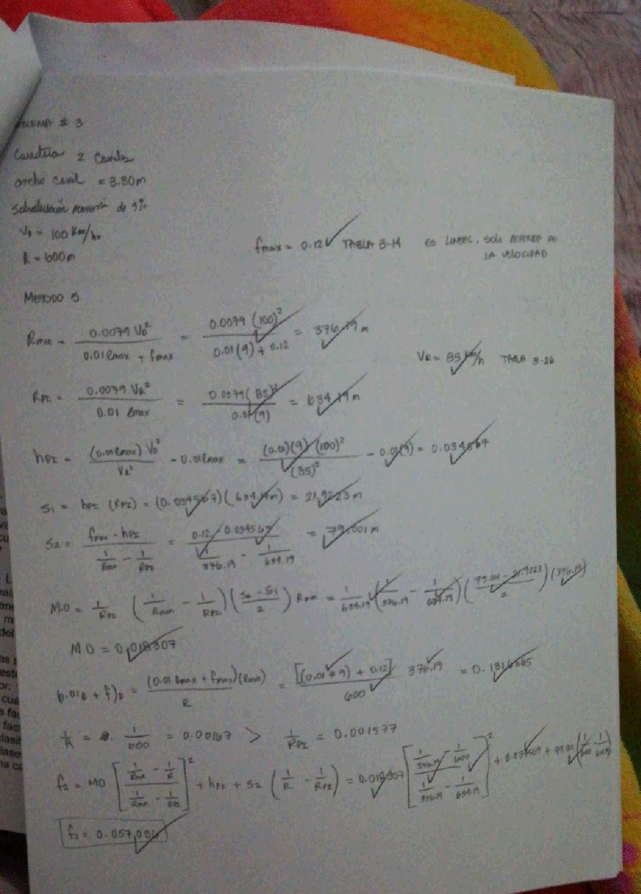 # 3
Carretera 2 Canales
ancho canal = 3.30m
Sobrelevación máxima de 9%
V_D = 100 Km/hr
R = 600m
f max = 0.12 TABLA 3-14 ES LINEAL, SOLO DEPENDE DE LA VELOCIDAD
METODO 5
R min = 0.0079 V_D² / (0.01 e max + f max) = 0.0079 (100)² / (0.01 (9) + 0.12) = 376.19 m
V_R = 85 Km/h TABLA 3-26
R_PI = 0.0079 V_R² / 0.01 e max = 0.0079 (85)² / 0.01(9) = 634.19 m
h_PI = (0.01 e max) V_D² / V_R² - 0.01 e max = (0.01)(9) (100)² / (85)² - 0.01(9) = 0.034567
S1 = h_PI (R_PI) = (0.034567)(634.19m) = 21.9223 m
S2 = (f max - h_PI) / (1/R min - 1/R_PI) = (0.12 - 0.034567) / (1/376.19 - 1/634.19) = 79.001 m
M.O = 1/R_PI (1/R min - 1/R_PI) ((S2 - S1)/2) R min = 1/634.19 (1/376.19 - 1/634.19) ((79.001 - 21.9223)/2) (376.19)
M.O = 0.018307
(0.01 e + f)_D = (0.01 e max + f max)(R min) / R = [(0.01 * 9) + 0.12] 376.19 / 600 = 0.1316665
1/R = 1/600 = 0.00167 > 1/R_PI = 0.001577
f2 = MO [(1/R min - 1/R) / (1/R min - 1/R_PI)]² + h_PI + S2 (1/R - 1/R_PI) = 0.018307 [(1/376.19 - 1/600) / (1/376.19 - 1/634.19)]² + 0.034567 + 79.001 (1/600 - 1/634.19)
f2 = 0.057,086